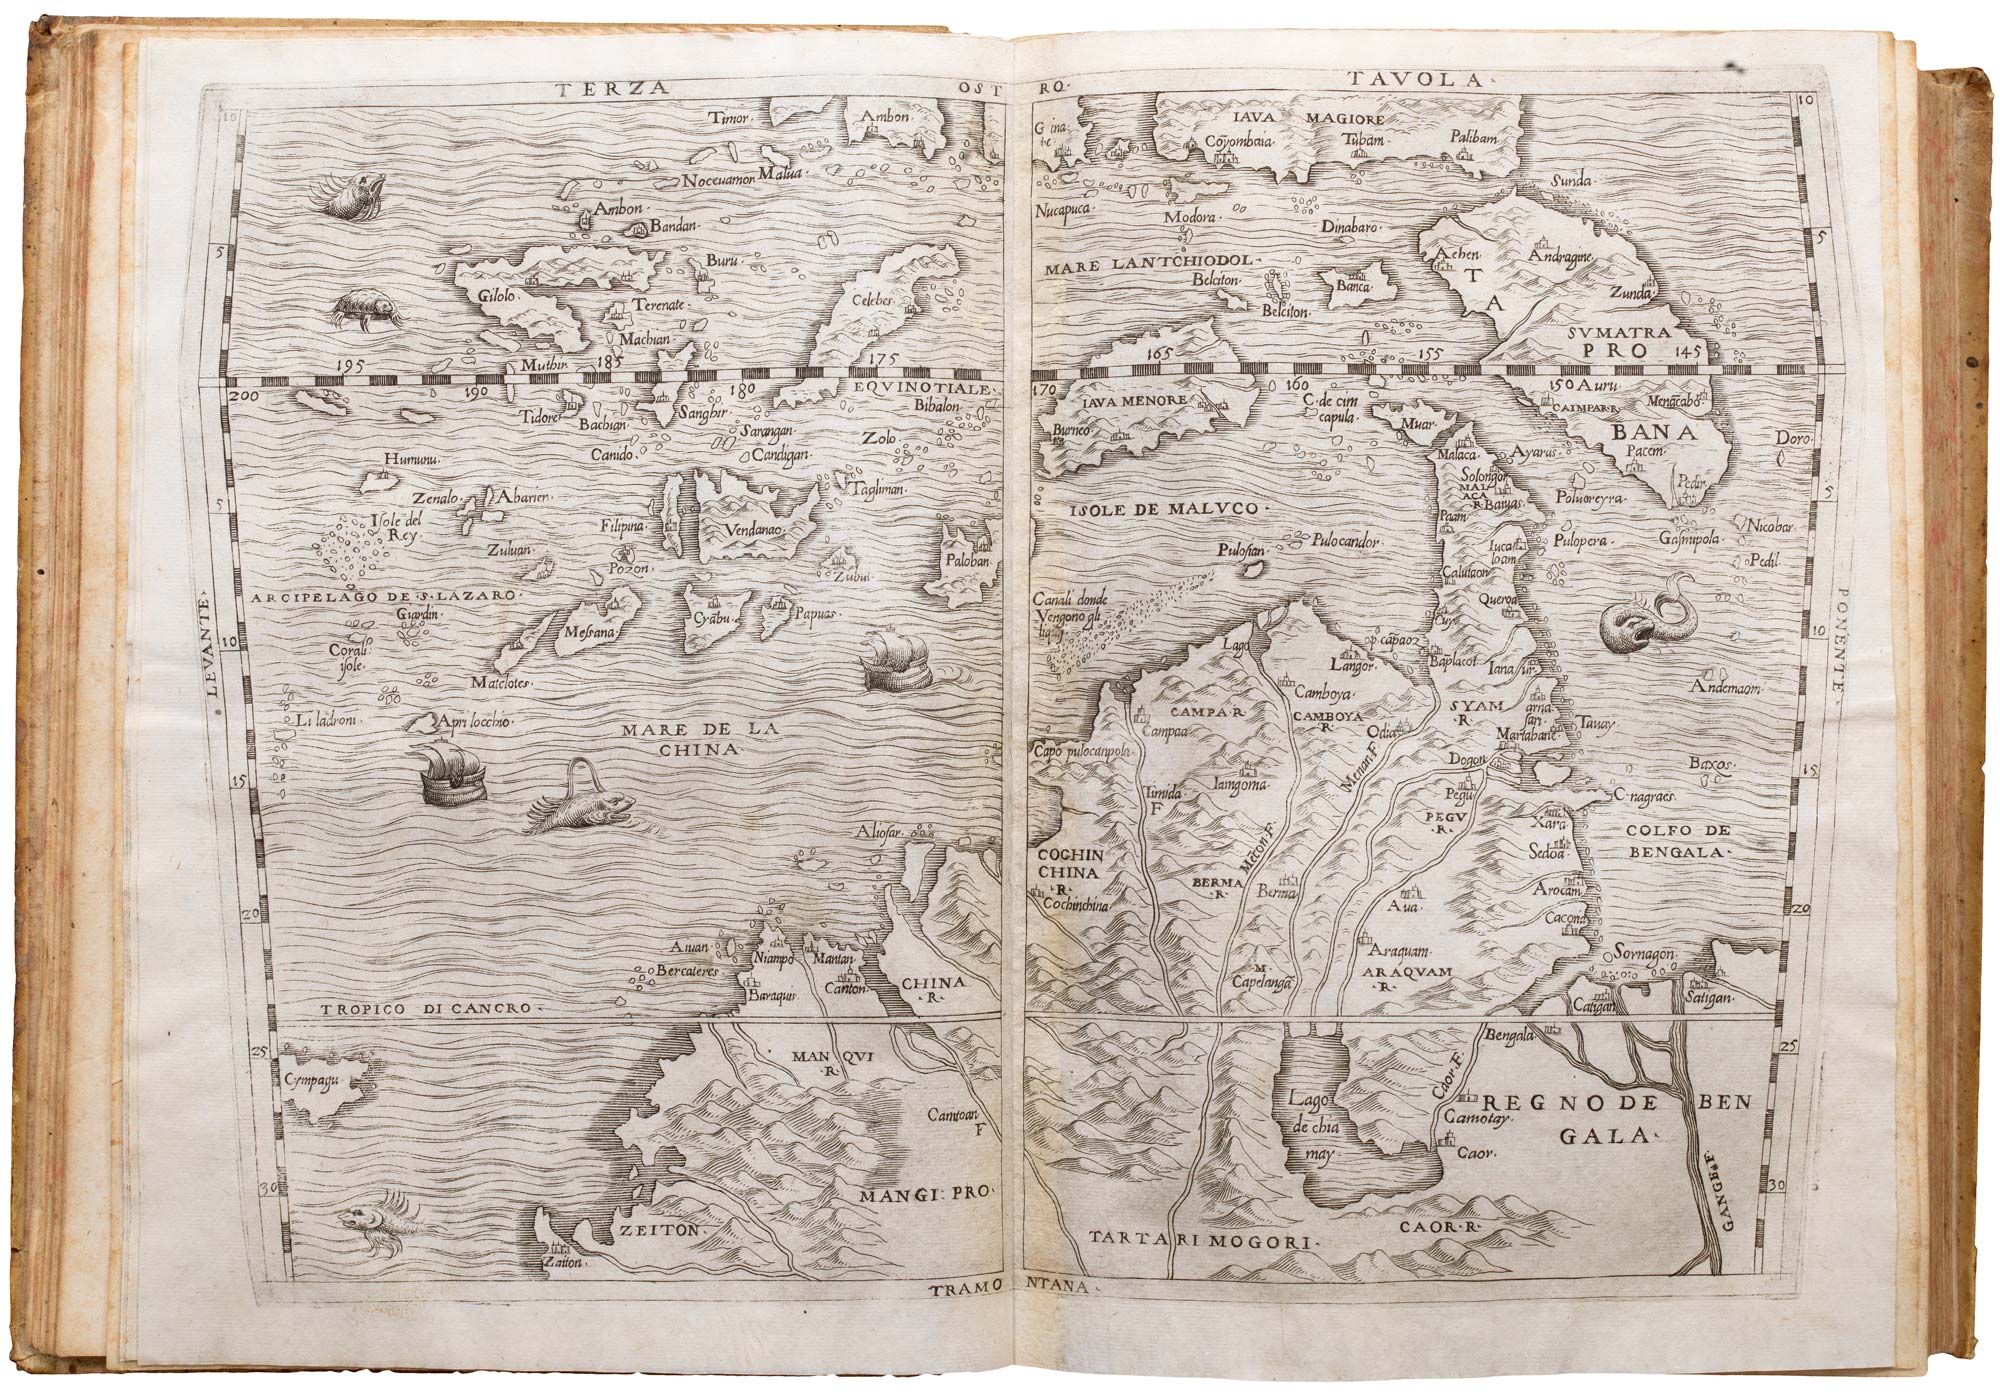 TERZA
OSTRO.
TAVOLA.
10
Timor.
Ambon.
IAVA MAGIORE
Tubam.
Palibam
10
Noceuamor
Malua.
Nucapuca.
Modora.
Sunda.
Ambon.
Bandan.
Dinabaro.
5
Buru.
MARE LANTCHIODOL.
Achen.
Andragine.
5
Gilolo.
Terenate.
Celebes.
Belciton.
Belciton.
Banca.
TA
Zunda.
Machian.
SVMATRA
PRO
Muthir.
195
185
175
165
155
145
200
190
180
EQVINOTIALE.
170
160
150
Auru.
Tidore.
Bachian.
Sanghir.
Bibalon.
IAVA MENORE
C. de cim
capula.
CAIMPAR.R.
Burneo.
Muar.
BANA
Doro.
Canido.
Sarangan.
Candigan.
Zolo.
Malaca.
Ayarus.
Pacem.
Humunu.
Solongor
MAL
ACA
R.
Pedir.
Zenalo.
Abarien.
Tagliman.
Poluoreyra.
5
5
Isole del
Rey.
Filipina.
Vendanao.
ISOLE DE MALVCO.
Paam.
Nicobar.
Gasnipola.
Zuluan.
Pozon.
Zubut.
Paloban.
Pulosian.
Pulocandor.
Pulopera.
Pedil.
Calutaon
ARCIPELAGO DE S. LAZARO.
Canali donde
Vengono gli
Queroa
Giardin.
Messana.
Cyabu.
Papuas.
10
Corali
isole.
Lago
Langor.
10
LEVANTE.
PONENTE.
Matelotes.
Camboya.
Andemaom.
Li ladroni.
Apri locchio.
MARE DE LA
CHINA.
CAMPA.R.
Campaa
CAMBOYA
R.
SYAM
R.
Odia
Martabane
Tauay
Capo pulocanpola.
Menan F.
Dogon
Baxos.
15
15
Iangoma.
Timida
F
Pegu
C. nagraes.
PEGV
.R.
Xara
Aliosar.
COLFO DE
BENGALA.
Sedoa.
COCHIN
CHINA
.R.
Cochinchina
BERMA
.R.
Berma
Aua.
Arocam.
20
20
Cacona
Aiuan.
Nianpo
Mantan.
Araquam.
Sornagon.
Bercateres.
Canton.
CHINA
.R.
M.
Capelanga
ARAQVAM
.R.
Baraquis.
Catigan
Satigan.
TROPICO DI CANCRO.
Bengala.
25
25
Cympagu.
MAN QVI
.R.
Caor F.
Lago
de chia
may.
Camotay.
REGNO DE BEN
GALA.
F
Caor.
30
30
MANGI: PRO.
ZEITON.
CAOR.R.
GANGES.F.
TARTARI MOGORI.
Zaiton.
TRAMONTANA.